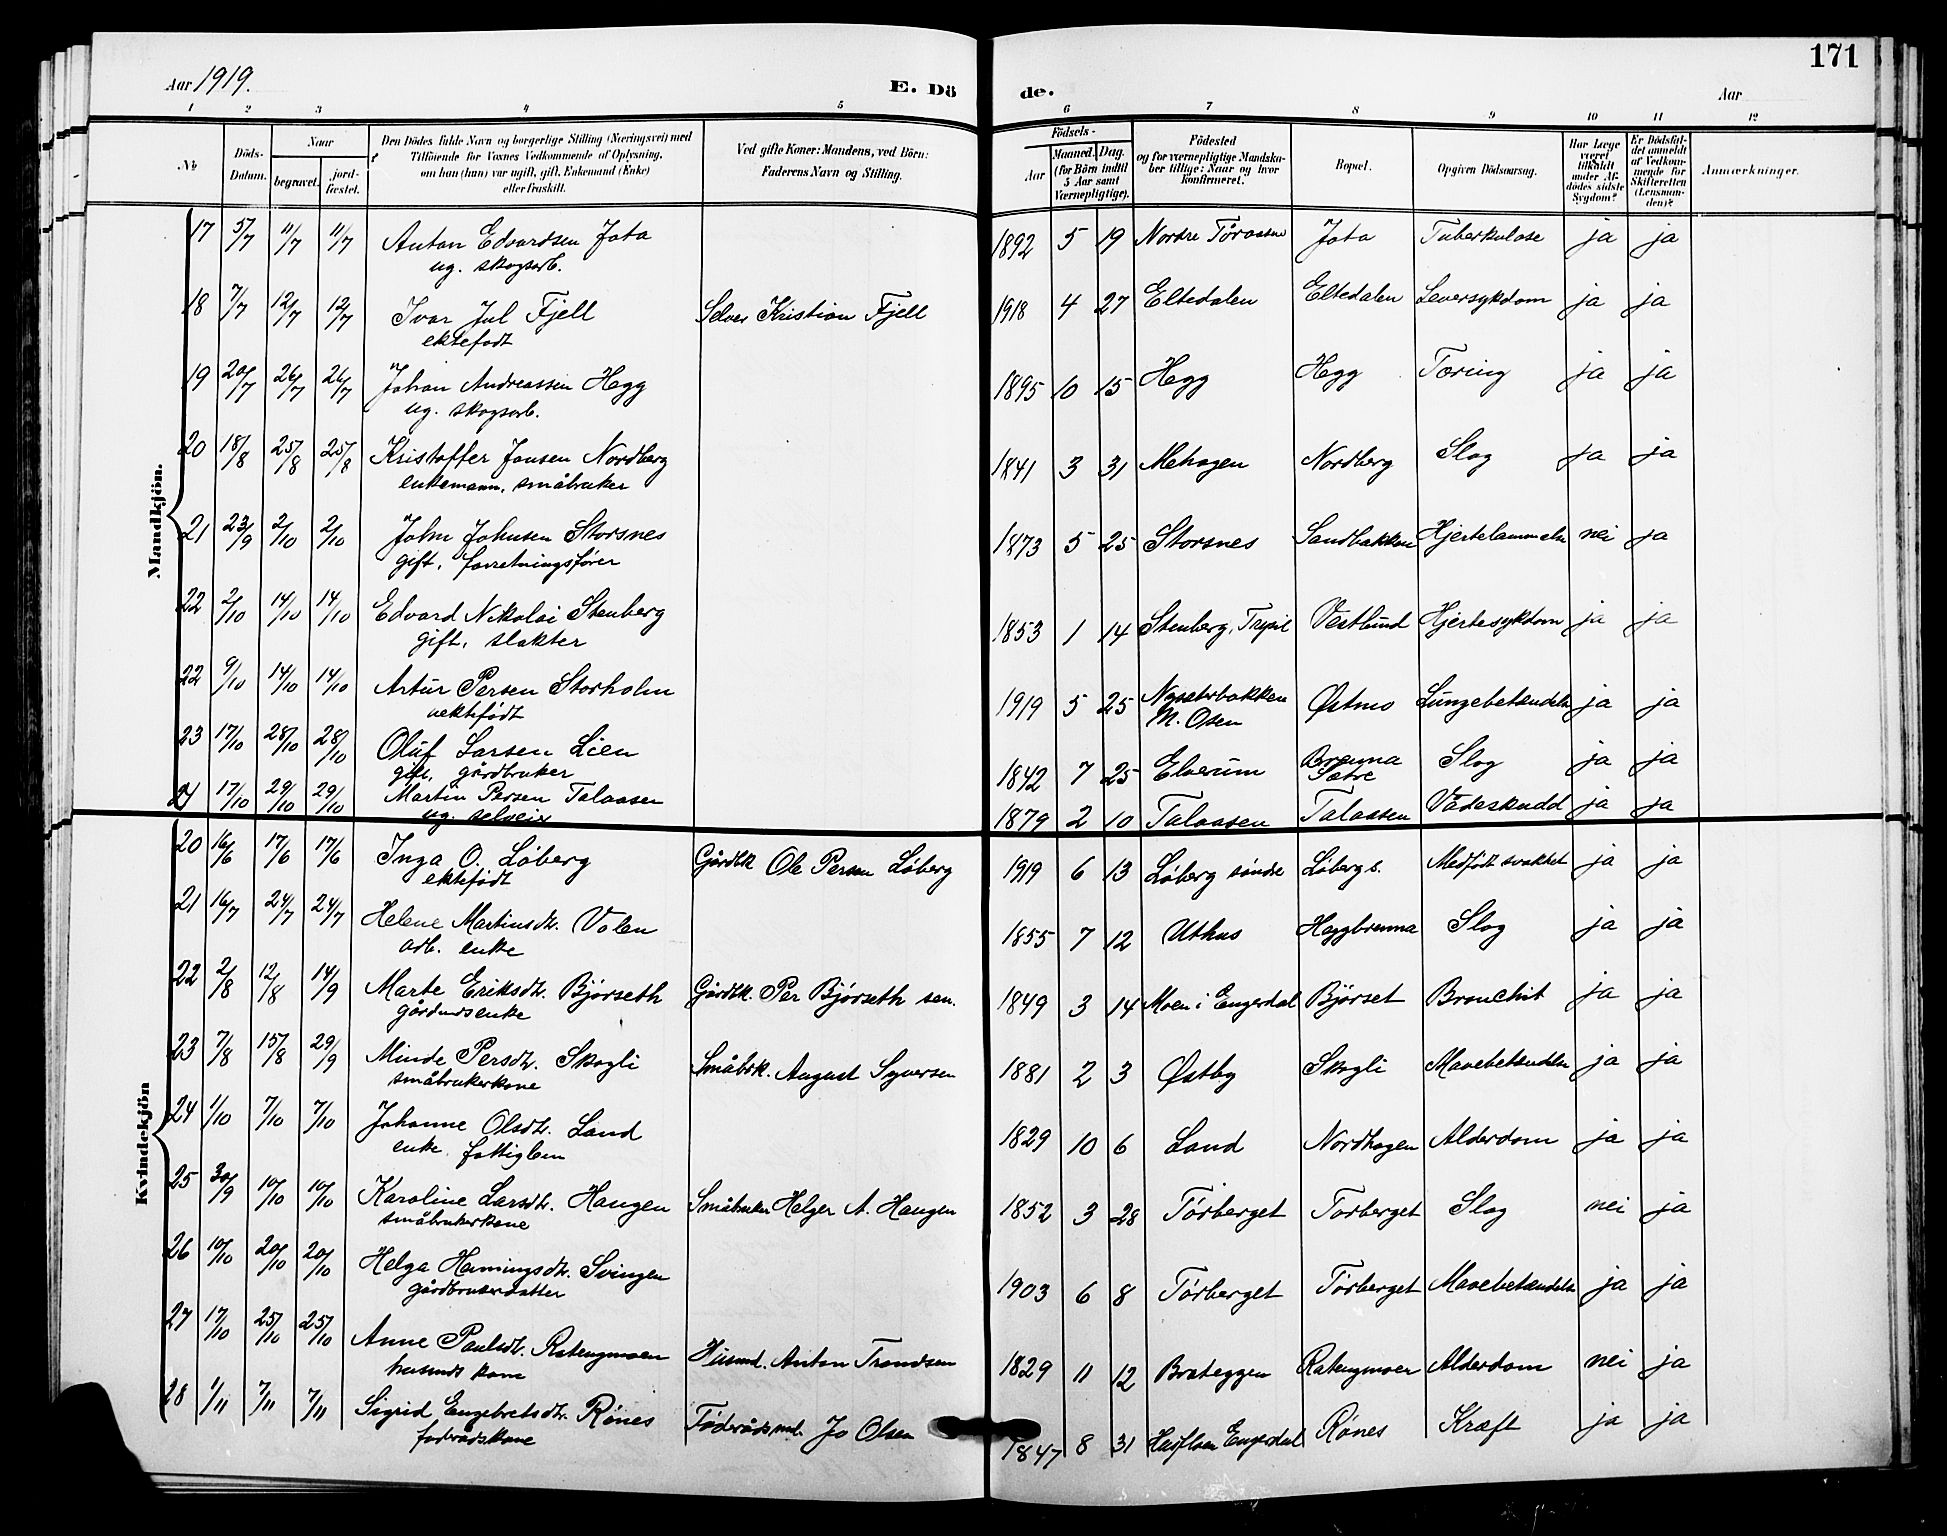 171
Aar 1919.
E. Dö
de.
Aar
1 2 3 4 5 6 7 8 9 10 11 12
No
Döds-Datum.
Naar
begravet.
jord-fæstet.
Den Dödes fulde Navn og borgerlige Stilling (Næringsvei) med
Tilföiende for Voxnes Vedkommende af Oplysning,
om han (hun) var ugift, gift, Enkemand (Enke)
eller fraskilt.
Ved gifte Koner: Mandens, ved Börn:
Faderens Navn og Stilling.
Födsels-
Aar
Maaned. Dag.
(for Börn indtil
5 Aar samt
Værnepligtige).
Födested
og for værnepligtige Mandska-
ber tillige: Naar og hvor
konfirmeret.
Bopæl.
Opgiven Dödsaarsag.
Har Læge
været
tilkaldt
under Af-
dödes sidste
Sygdom?
Er Dödsfal-
det anmeldt
af Vedkom-
mende for
Skifteretten
(Lensman-
den)?
Anmærkninger.
Mandkjön.
17 5/7 11/7 11/7 Anton Edvardsen Jota 1892 5 19 Nordre Töraasen Jota Tuberkulose ja ja
ug. skogsarb.
18 7/7 12/7 12/7 Ivar Jul Fjell Selveier Kristian Fjell 1918 4 27 Eltedalen Eltedalen Leversykdom ja ja
ektefödt
19 20/7 26/7 26/7 Johan Andreassen Hegg 1895 10 15 Hegg Hegg Tæring ja ja
ug. skogsarb.
20 18/8 25/8 25/8 Kristoffer Jonsen Nordberg 1841 3 31 Mehagen Nordberg Slag ja ja
enkemann, småbruker
21 23/9 2/10 2/10 John Johnsen Storsnes 1873 5 25 Storsnes Sandbakken Hjertelammelse nei ja
gift, forretningsfører
22 2/10 14/10 14/10 Edvard Nikolai Stenberg 1853 1 14 Stenberg, Trysil Vestlund Hjertesykdom ja ja
gift, slakter
22 9/10 14/10 14/10 Artur Persen Storholm 1919 5 25 Nysæterbakken Østmo Lungebetændelse ja ja
uektefödt M. Osen
23 17/10 28/10 28/10 Oluf Larsen Lien 1842 7 25 Elverum Brenna Sætre Slag ja ja
gift, gårdbruker
24 17/10 29/10 29/10 Martin Persen Talaasen 1879 2 10 Talaasen Talaasen Vådeskudd ja ja
ug. selveier
Kvindekjön
20 16/6 17/6 17/6 Inga O. Löberg Gårdbk Ole Persen Löberg 1919 6 13 Löberg söndre Löberg s. Medfödt svakhet ja ja
ektefödt
21 16/7 24/7 24/7 Helene Martinsdtr. Volen 1855 7 12 Uthus Heggbrenna Slag ja ja
arb. enke
22 2/8 12/8 14/9 Marte Eriksdtr. Bjørseth Gårdbk. Per Bjørseth sen. 1849 3 14 Moen i Engerdal Bjørset Bronchit ja ja
gårdmdsenke
23 7/8 15/8 29/9 Minde Persdtr. Skogli Småbrk. August Syversen 1881 2 3 Østby Skogli Mavebetændelse ja ja
småbrukerkone
24 1/10 7/10 7/10 Johanne Olsdtr. Land 1829 10 6 Land Nordhagen Alderdom ja ja
enke fattiglem
25 30/9 10/10 10/10 Karoline Larsdtr. Haugen Småbruker Helger A. Haugen 1852 3 28 Törberget Törberget Slag nei ja
småbrukerkone
26 10/10 20/10 20/10 Helga Hemingsdtr. Svingen 1903 6 8 Törberget Törberget Mavebetændelse ja ja
gårdbrukerdatter
27 17/10 25/10 25/10 Anne Paulsdtr. Ratengmoen Husmd. Anton Trondsen 1829 11 12 Brateggen Ratengmoen Alderdom nei ja
husmds kone
28 1/11 7/11 7/11 Sigrid Engebretsdtr. Rönes Föderådsmd. Jo Olsen 1847 8 31 Engerdal Rönes Kræft ja ja
föderådskone